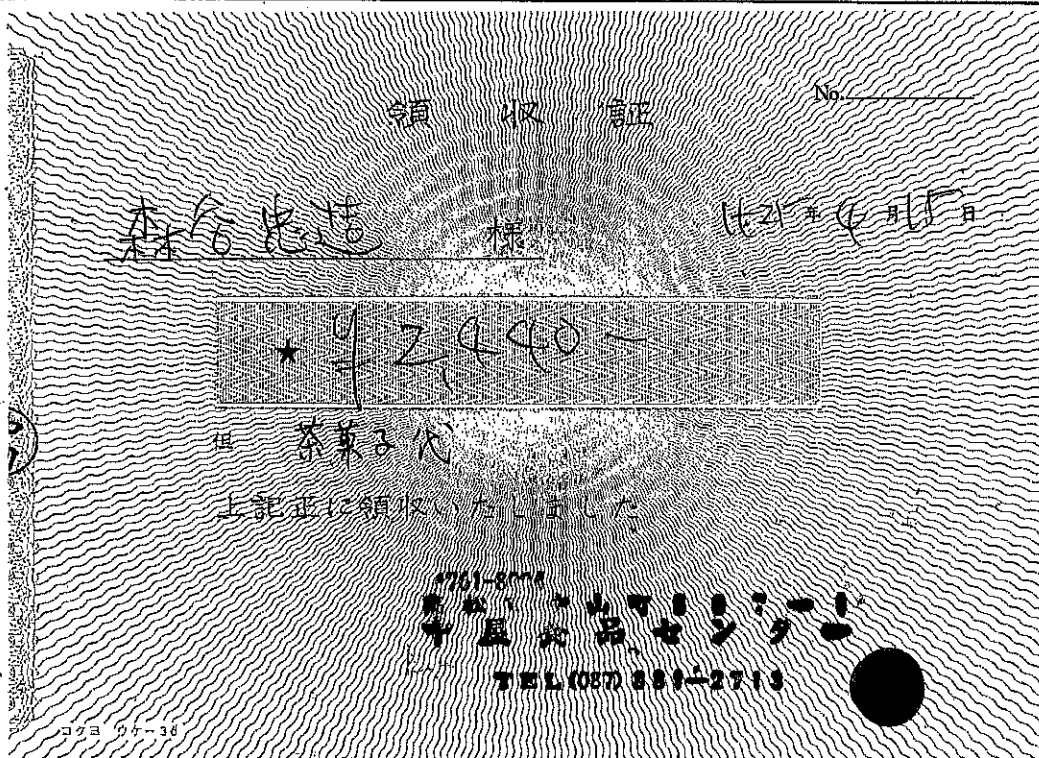 No.
領収証
森合忠造 様
H25年4月15日
★ ¥2,440-
但 茶菓子代
上記正に領収いたしました
食品センター
TEL(087)881-2713
コクヨ ウケ-36